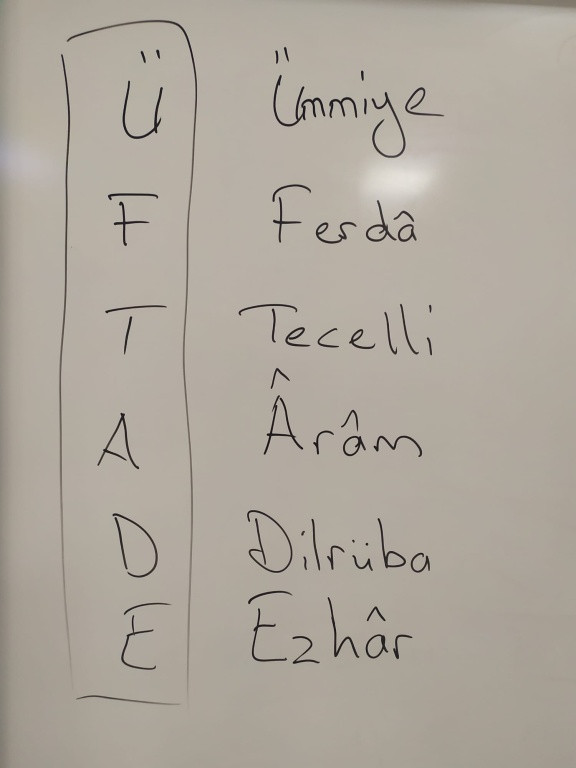 Ü Ümmiye
F Ferdâ
T Tecelli
A Ârâm
D Dilrüba
E Ezhâr